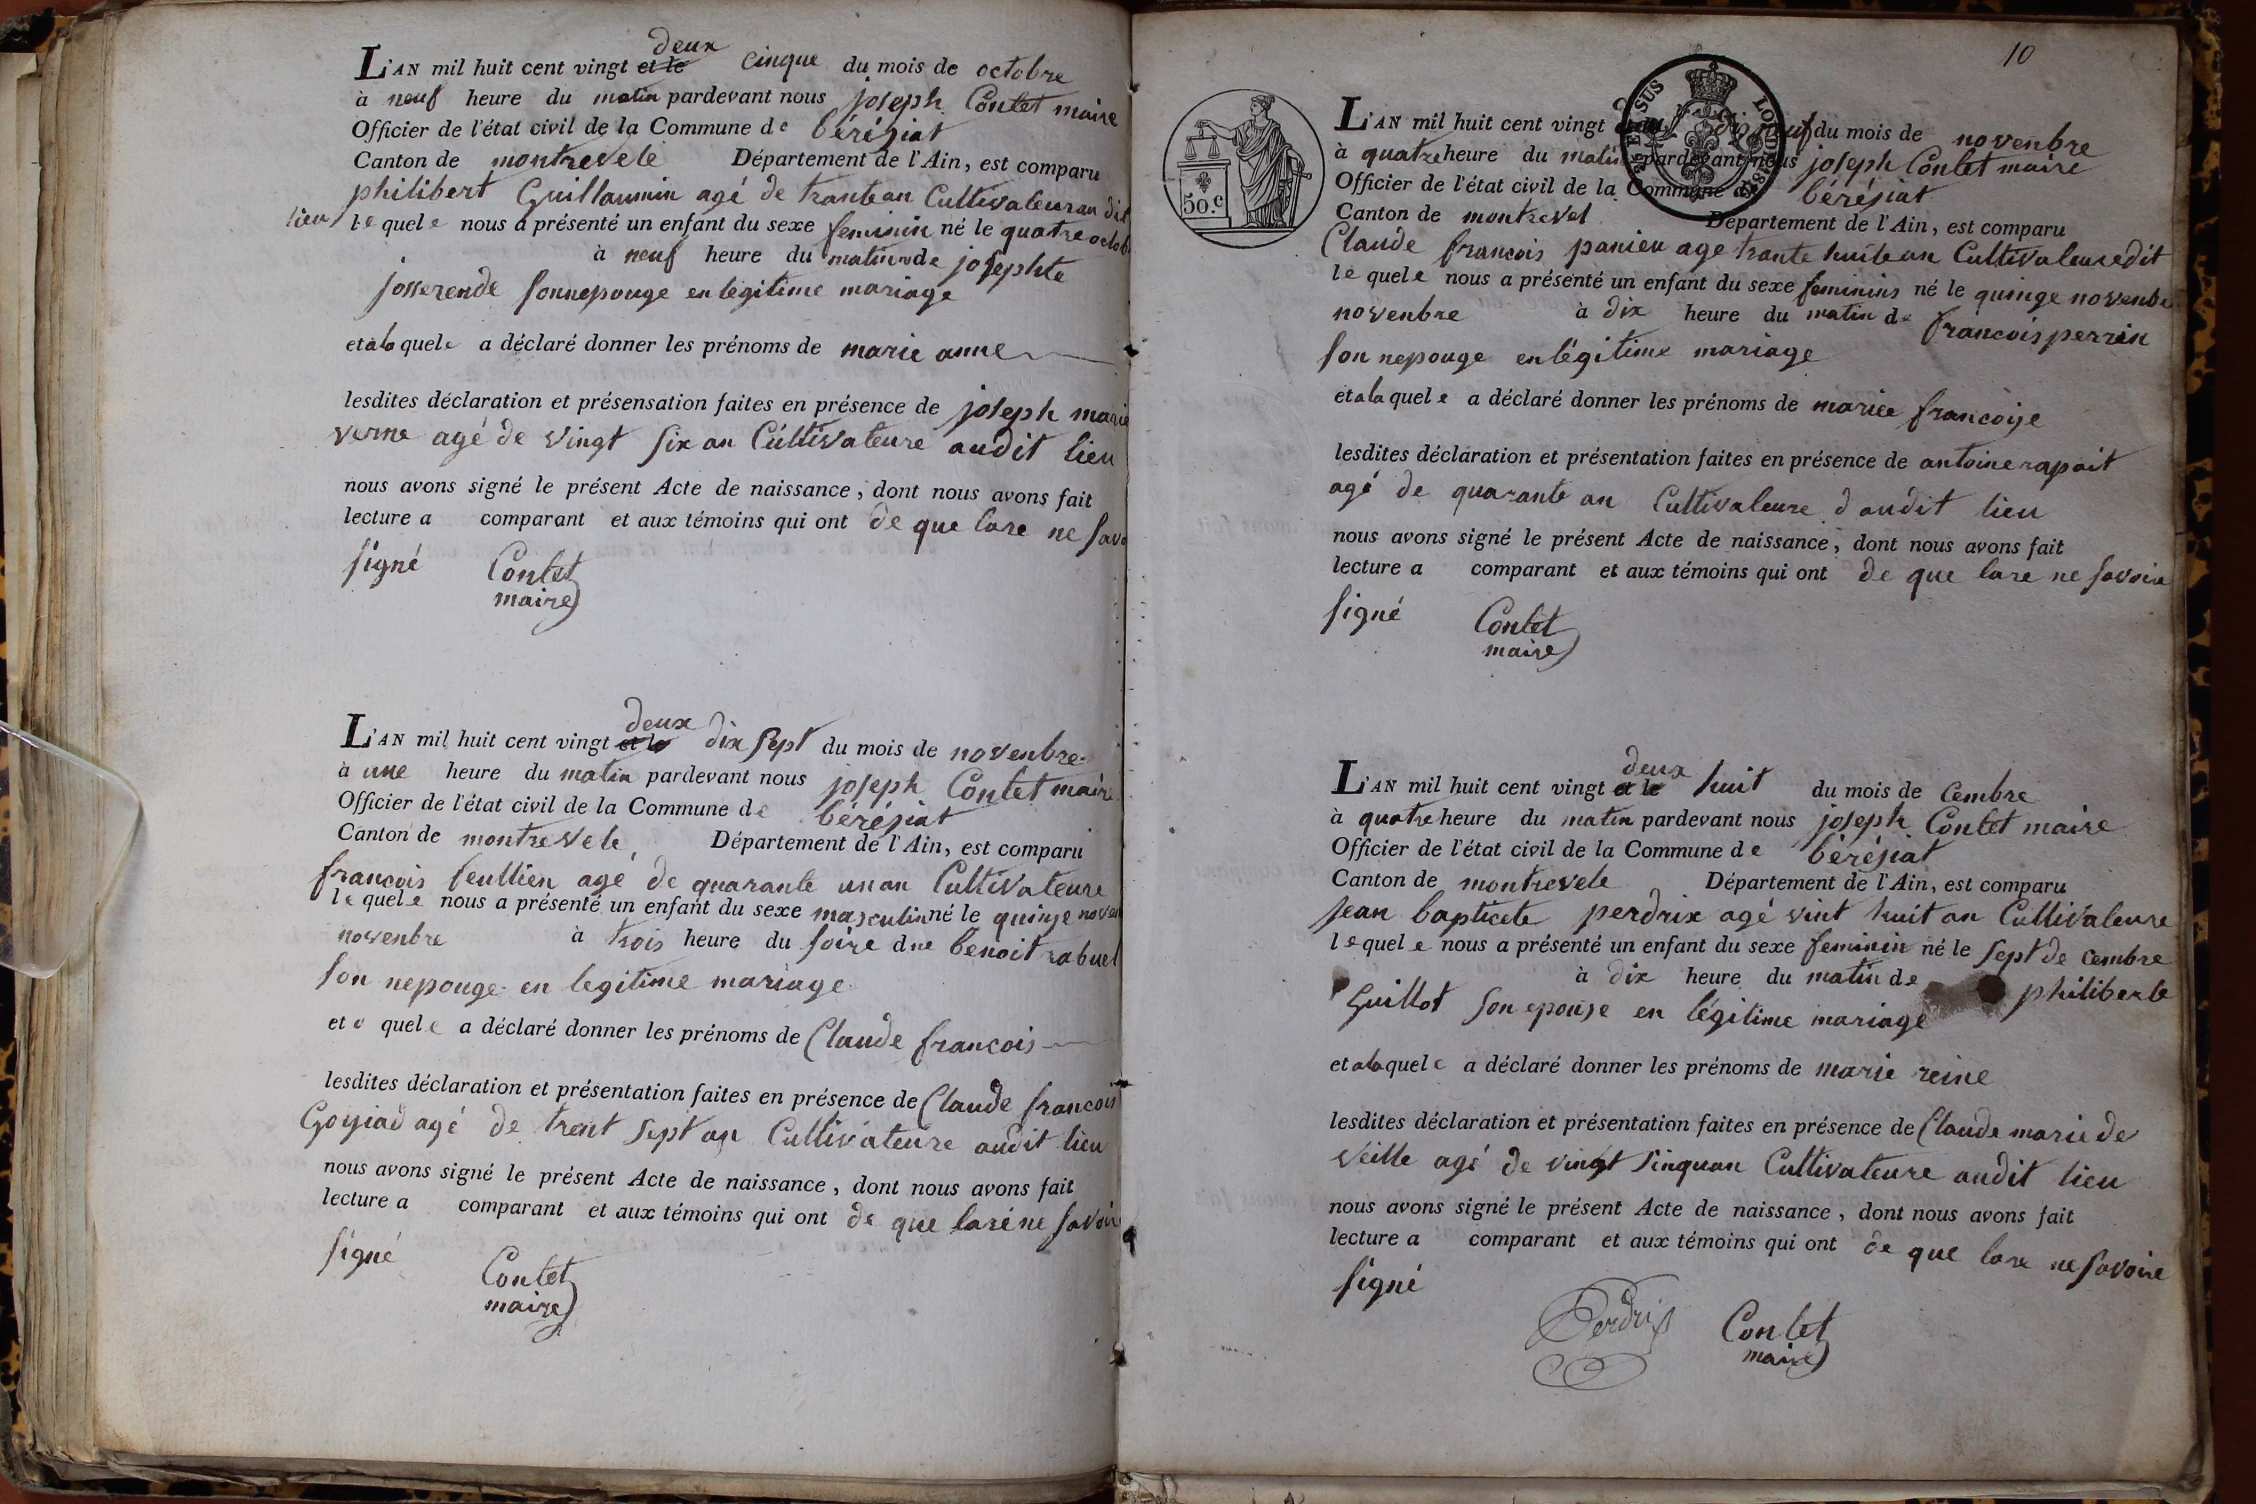 deux
L'AN mil huit cent vingt et le cinque du mois de octobre
à neuf heure du matin pardevant nous joseph Contet maire
Officier de l'état civil de la Commune de béréziat
Canton de montrevele Département de l'Ain, est comparu
philibert Guillaumin agé de trante an Cultivateur au dit
lieu lequele nous a présenté un enfant du sexe feminin né le quatre octob
à neuf heure du matin de josephte
josserende sonnepouze en légitime mariage
et ala quele a déclaré donner les prénoms de marie anne
lesdites déclaration et présensation faites en présence de joseph marie
verne agé de vingt six an Cultivateure audit lieu
nous avons signé le présent Acte de naissance, dont nous avons fait
lecture a comparant et aux témoins qui ont de que lare ne savo
signé Contet
maire
deux
L'AN mil huit cent vingt et le dix sept du mois de novenbre
à une heure du matin pardevant nous joseph Contet maire
Officier de l'état civil de la Commune de béréziat
Canton de montrevele Département de l'Ain, est comparu
francois feullien agé de quarante un an Cultivateure
lequele nous a présenté un enfant du sexe masculin né le quinze noven
novenbre à trois heure du soire dne benoit rabuel
son nepouze en legitime mariage
et o quele a déclaré donner les prénoms de Claude francois
lesdites déclaration et présentation faites en présence de Claude francois
Goyiad agé de trent sept an Cultivateure audit lieu
nous avons signé le présent Acte de naissance, dont nous avons fait
lecture a comparant et aux témoins qui ont de que laré ne savoir
signé Contet
maire
10
50.c
L'AN mil huit cent vingt du mois de novenbre
à quatre heure du matin pardevant nous joseph Contet maire
Officier de l'état civil de la Commune de béréziat
Canton de montrevel Département de l'Ain, est comparu
Claude francois panieu age trante huite an Cultivateuredit
lequele nous a présenté un enfant du sexe feminins né le quinze novenbre
novenbre à dix heure du matin de francois perrin
son nepouze en légitime mariage
et ala quele a déclaré donner les prénoms de mariee francoize
lesdites déclaration et présentation faites en présence de antoine rapait
agé de quarante an Cultivateure daudit lieu
nous avons signé le présent Acte de naissance, dont nous avons fait
lecture a comparant et aux témoins qui ont de que lare ne savoire
signé Contet
maire
deux
L'AN mil huit cent vingt et le huit du mois de Cembre
à quatre heure du matin pardevant nous joseph Contet maire
Officier de l'état civil de la Commune de béréziat
Canton de montrevele Département de l'Ain, est comparu
jean bapticte perdrix agé vint huit an Cultivateure
lequele nous a présenté un enfant du sexe feminin né le sept de cembre
à dix heure du matin de philiberte
Guillot son epouze en légitime mariage
et ala quele a déclaré donner les prénoms de marie reine
lesdites déclaration et présentation faites en présence de Claude marie de
veille agé de vingt sinquan Cultivateure audit lieu
nous avons signé le présent Acte de naissance, dont nous avons fait
lecture a comparant et aux témoins qui ont de que lare ne savoire
signé
Perdrix Contet
maire